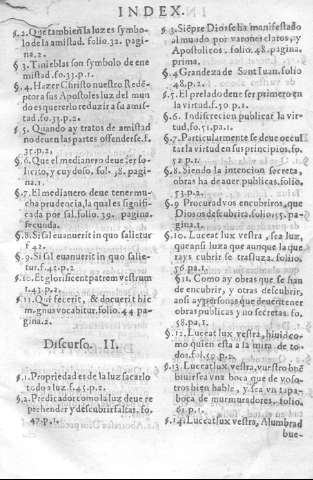 INDEX.
§.2. Que tambien la luz es symbo-
lo de la amistad. folio. 32. pagi-
na. 2.
§. 3. Tinieblas son symbolo de ene
mistad. fo. 33. p. 1.
§. 4. Hazer Christo nuestro Redẽ-
ptor a sus Apostoles luz del mun
do es quererlo reduzir a su amis-
tad. fo. 33. p. 2.
§ 5. Quando ay tratos de amistad
no deuen las partes offenderse. f.
35. p. 2.
§. 6. Que el medianero deue ser so-
licito, y cuydoso, fol. 38. pagi-
na. 1.
§. 7. El medianero deue tener mu-
cha prudencia, la qual es signifi-
cada por sal. folio. 39. pagina.
secunda.
§. 8. Si sal euanuerit in quo salietur
f. 42.
§. 9. Si sal euanuerit in quo salie-
tur. f. 42. p. 2
§. 10. Et glorificent patrem vestrum
f. 43. p. 2.
§. 11. Qui fecerit, & docuerit hic
m.gnus vocabitur. folio. 44 pa-
gina. 2.
Discurso. II.
§. 1. Propriedad es de la luz sacarlo
todo a luz. f. 45. p. 2.
§. 2. Predicador como la luz deue re
prehender y descubrir faltas. fo.
47. p. 1.
§. 3. Siẽpre Dios se ha manifestado
al mundo por varones claros, y
Apostolicos. folio. 48. pagina.
prima.
§. 4 Grandeza de Sant Iuan. folio
48. p. 2.
§. 5. El prelado deue ser primero en
la virtud. f. 50 p. 1.
§. 6. Indiscrecion publicar la vir-
tud. fo. 51. pa. 1.
§. 7. Particularmente se deue occul
tar la virtud en sus principios. fo.
52 p. 1.
§. 8. Siendo la intencion secreta,
obras ha de auer publicas. folio.
53. p. 2.
§. 9 Procurad vos encubriros, que
Dios os descubrira. folio. 55. pa-
gina. 1.
§. 10. Luceat lux vestra, sea luz,
que ansi luza que aunque la que
rays cubrir se trasluza. folio.
56. pa. 1.
§ 11. Como ay obras que se han
de encubrir, y otras descubrir,
ansi ay personas que deuen tener
obras publicas y no secretas. fo.
58. pa. 1.
§. 12. Luceat lux vestra, biuid co-
mo quien esta a la mira de to-
dos. fol. 59. p. 2.
§. 13. Luceat lux vestra, vuestro bẽ
biuir sea vna boca que de voso-
tros bien hable, y sea vn tapa-
boca de murmuradores. folio.
61. p. 1.
§. 14. Luceat lux vestra, Alumbrad
bue-